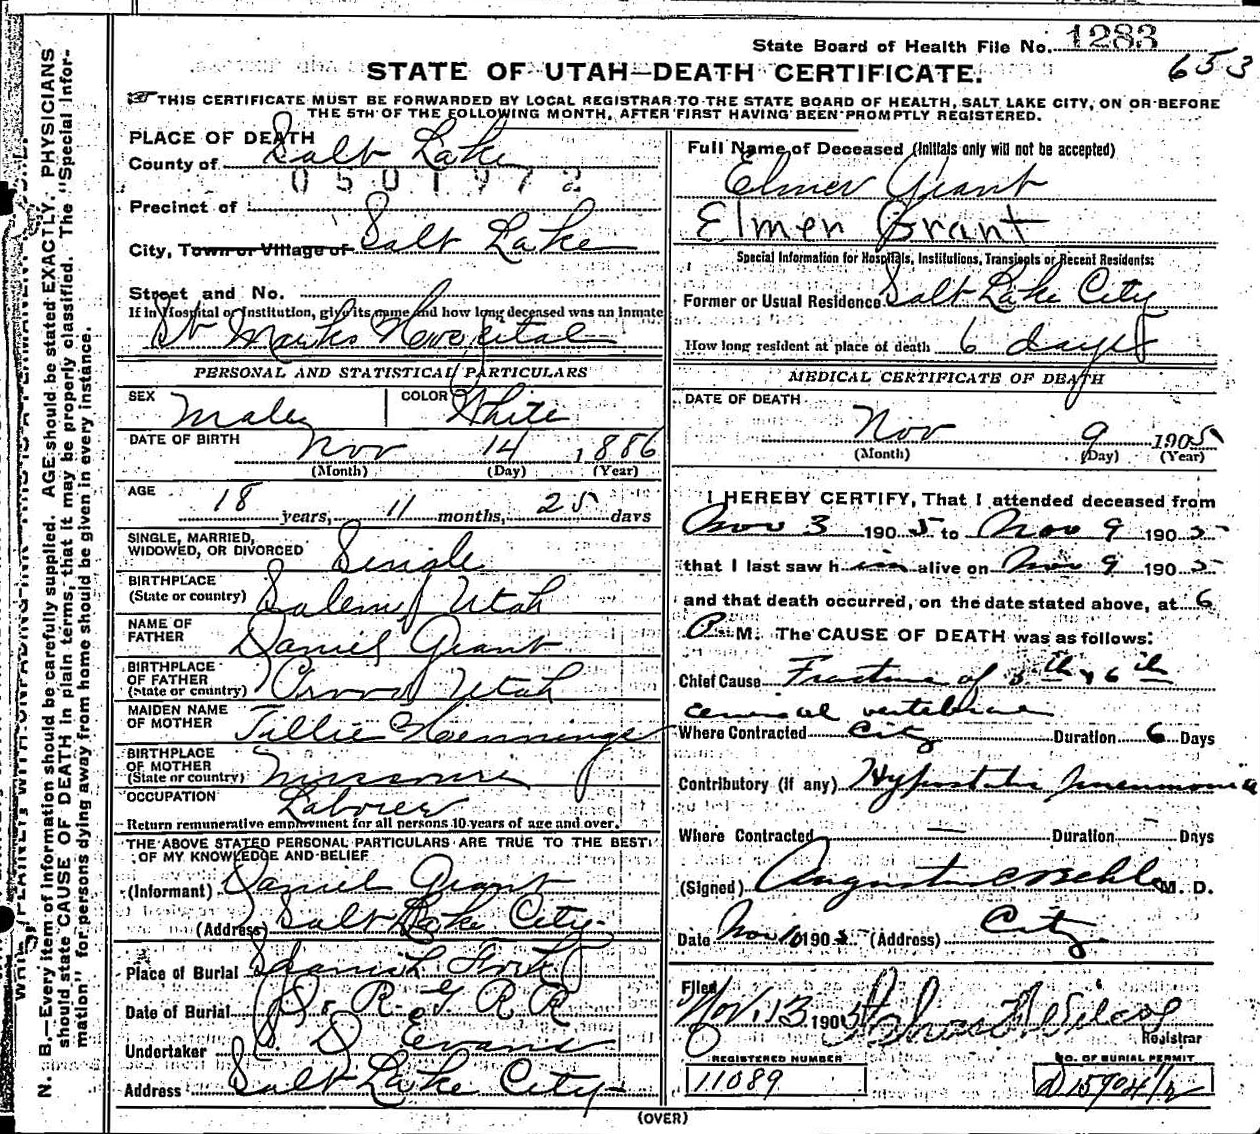 State Board of Health File No. 1283
653
STATE OF UTAH—DEATH CERTIFICATE.
THIS CERTIFICATE MUST BE FORWARDED BY LOCAL REGISTRAR TO THE STATE BOARD OF HEALTH, SALT LAKE CITY, ON OR BEFORE
THE 5TH OF THE FOLLOWING MONTH, AFTER FIRST HAVING BEEN PROMPTLY REGISTERED.
PLACE OF DEATH
County of Salt Lake
0501972
Precinct of
City, Town or Village of Salt Lake
Street and No.
If in Hospital or Institution, give its name and how long deceased was an inmate
St Marks Hospital
PERSONAL AND STATISTICAL PARTICULARS
SEX Male COLOR White
DATE OF BIRTH Nov 14 1886
(Month) (Day) (Year)
AGE 18 years, 11 months, 25 days
SINGLE, MARRIED,
WIDOWED, OR DIVORCED Single
BIRTHPLACE
(State or country) Salem Utah
NAME OF
FATHER Daniel Grant
BIRTHPLACE
OF FATHER
(State or country) Provo Utah
MAIDEN NAME
OF MOTHER Tillie Hennings
BIRTHPLACE
OF MOTHER
(State or country) Missouri
OCCUPATION Laborer
Return remunerative employment for all persons 10 years of age and over.
THE ABOVE STATED PERSONAL PARTICULARS ARE TRUE TO THE BEST
OF MY KNOWLEDGE AND BELIEF
(Informant) Daniel Grant
(Address) Salt Lake City
Place of Burial Spanish Fork
Date of Burial D. & R. G. R R
Undertaker S D Evans
Address Salt Lake City
Full Name of Deceased (Initials only will not be accepted)
Elmer Grant
Elmer Grant
Special Information for Hospitals, Institutions, Transients or Recent Residents:
Former or Usual Residence Salt Lake City
How long resident at place of death 6 days
MEDICAL CERTIFICATE OF DEATH
DATE OF DEATH
Nov 9 1905
(Month) (Day) (Year)
I HEREBY CERTIFY, That I attended deceased from
Nov 3 1905 to Nov 9 1905
that I last saw him alive on Nov 9 1905
and that death occurred, on the date stated above, at 6
P. M. The CAUSE OF DEATH was as follows:
Chief Cause Fracture of 5th & 6th
cervical vertebrae
Where Contracted City Duration 6 Days
Contributory (if any) Hypostatic pneumonia
Where Contracted — Duration - Days
(Signed) M. D.
Date Nov 10 1905 (Address) City
Filed
Nov. 13 1905
Registrar
REGISTERED NUMBER
11089
NO. OF BURIAL PERMIT
(OVER)
N. B.—Every item of information should be carefully supplied. AGE should be stated EXACTLY. PHYSICIANS
should state CAUSE OF DEATH in plain terms, that it may be properly classified. The "Special Infor-
mation" for persons dying away from home should be given in every instance.